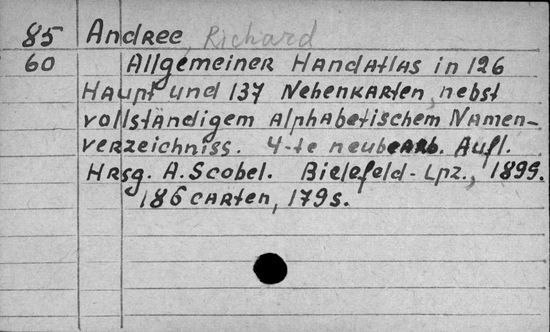 85 Andree, Richard
60 Allgemeiner Handatlas in 126
Haupt und 137 Nebenkarten, nebst
vollständigem alphabetischem Namen-
verzeichniss. 4-te neubearb. Aufl.
Hrsg. A. Scobel. Bielefeld - Lpz., 1899.
186 carten, 179 s.